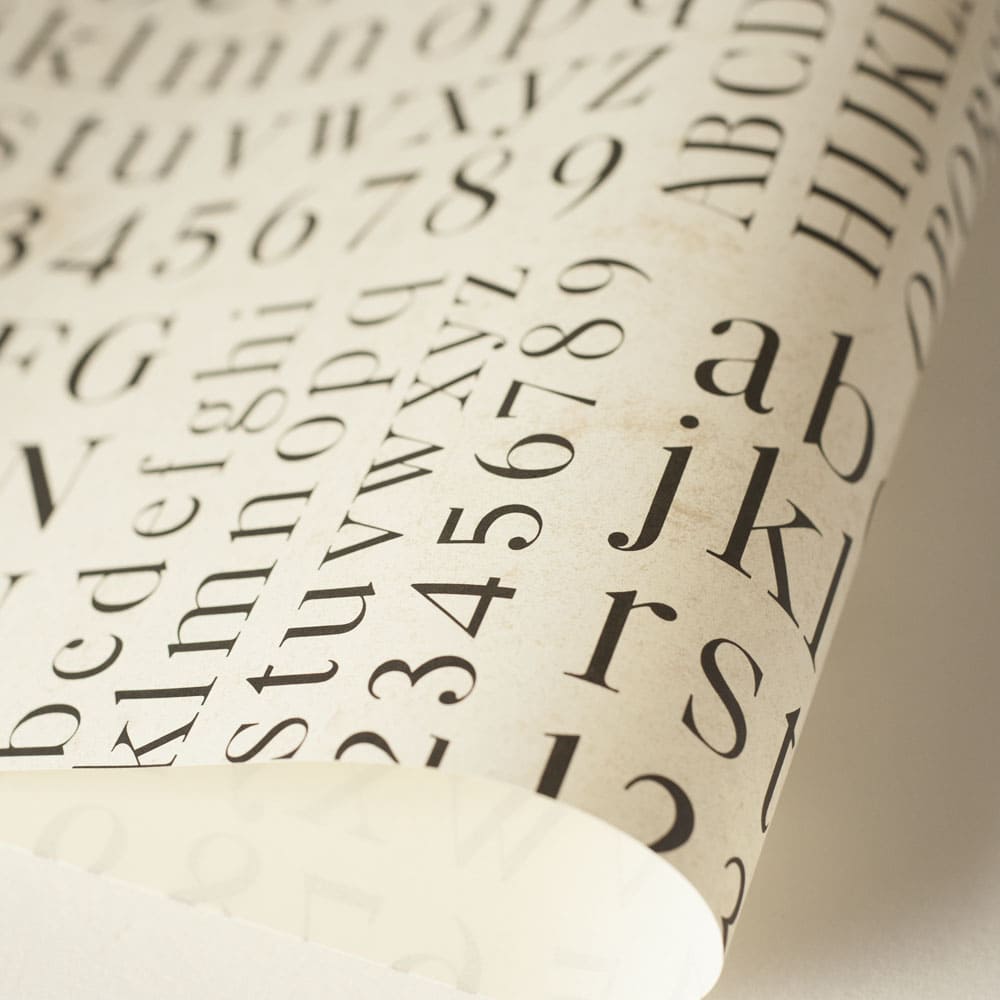 klmnop
stuvwxyz
3456789
FG
ABCD
HIJKL
OPQR
bcdefghi
klmnopq
stuvwxyz
23456789
ab
jkl
rst
12